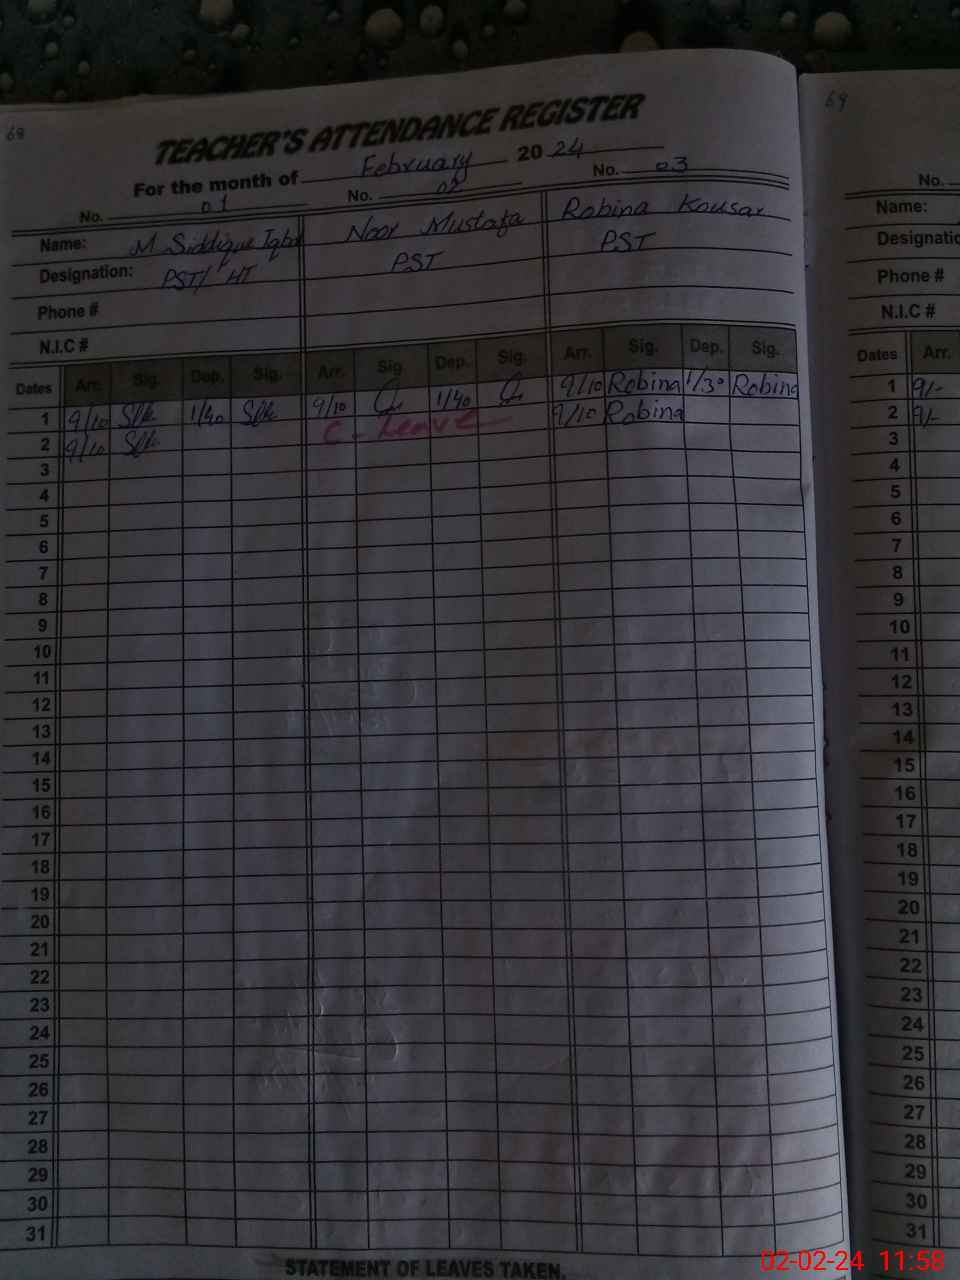 68
TEACHER'S ATTENDANCE REGISTER
For the month of February 2024
No. 01 No. 02 No. 03
Name: M Siddique Iqbal Noor Mustafa Robina Kousar
Designation: PST/ HT PST PST
Phone #
N.I.C #
Dates Arr. Sig. Dep. Sig. Arr. Sig. Dep. Sig. Arr. Sig. Dep. Sig.
1 9/10 1/40 9/10 1/40 9/10 Robina 1/30 Robina
2 9/10 C-Leave 9/10 Robina
3
4
5
6
7
8
9
10
11
12
13
14
15
16
17
18
19
20
21
22
23
24
25
26
27
28
29
30
31
STATEMENT OF LEAVES TAKEN.
69
No.
Name:
Designatio
Phone #
N.I.C #
Dates Arr.
1 9/-
2 9/-
3
4
5
6
7
8
9
10
11
12
13
14
15
16
17
18
19
20
21
22
23
24
25
26
27
28
29
30
31
02-02-24 11:58